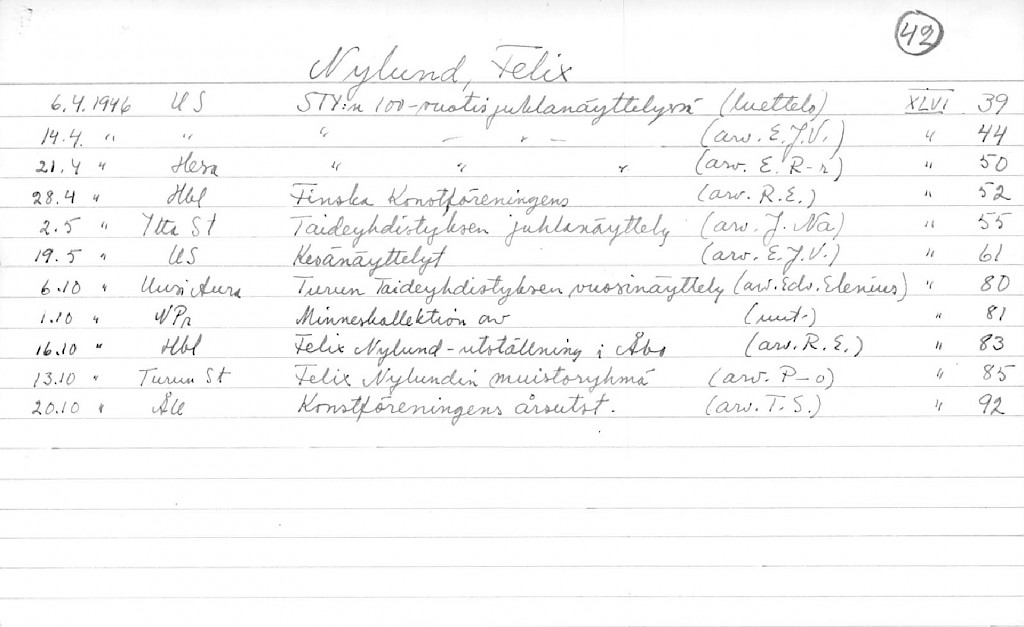 42
Nylund, Felix
6.4.1946 US STY:n 100-vuotisjuhlanäyttelyssä (luettelo) XLVI 39
14.4. " " " — " — (arv. E.J.V.) " 44
21.4 " Hesa " " " (arv. E. R-r) " 50
28.4 " Hbl Finska Konstföreningens (arv. R.E.) " 52
2.5 " Ilta St Taideyhdistyksen juhlanäyttely (arv. J. Na) " 55
19.5 " US Kesänäyttelyt (arv. E.J.V.) " 61
6.10 " Uusi Aura Turun Taideyhdistyksen vuosinäyttely (arv. Edv. Elenius) " 80
1.10 " NPr Minneskollektion av (uut.) " 81
16.10 " Hbl Felix Nylund-utställning i Åbo (arv. R.E.) " 83
13.10 " Turun St Felix Nylundin muistoryhmä (arv. P-o) " 85
20.10 " ÅU Konstföreningens årsutst. (arv. T.S.) " 92